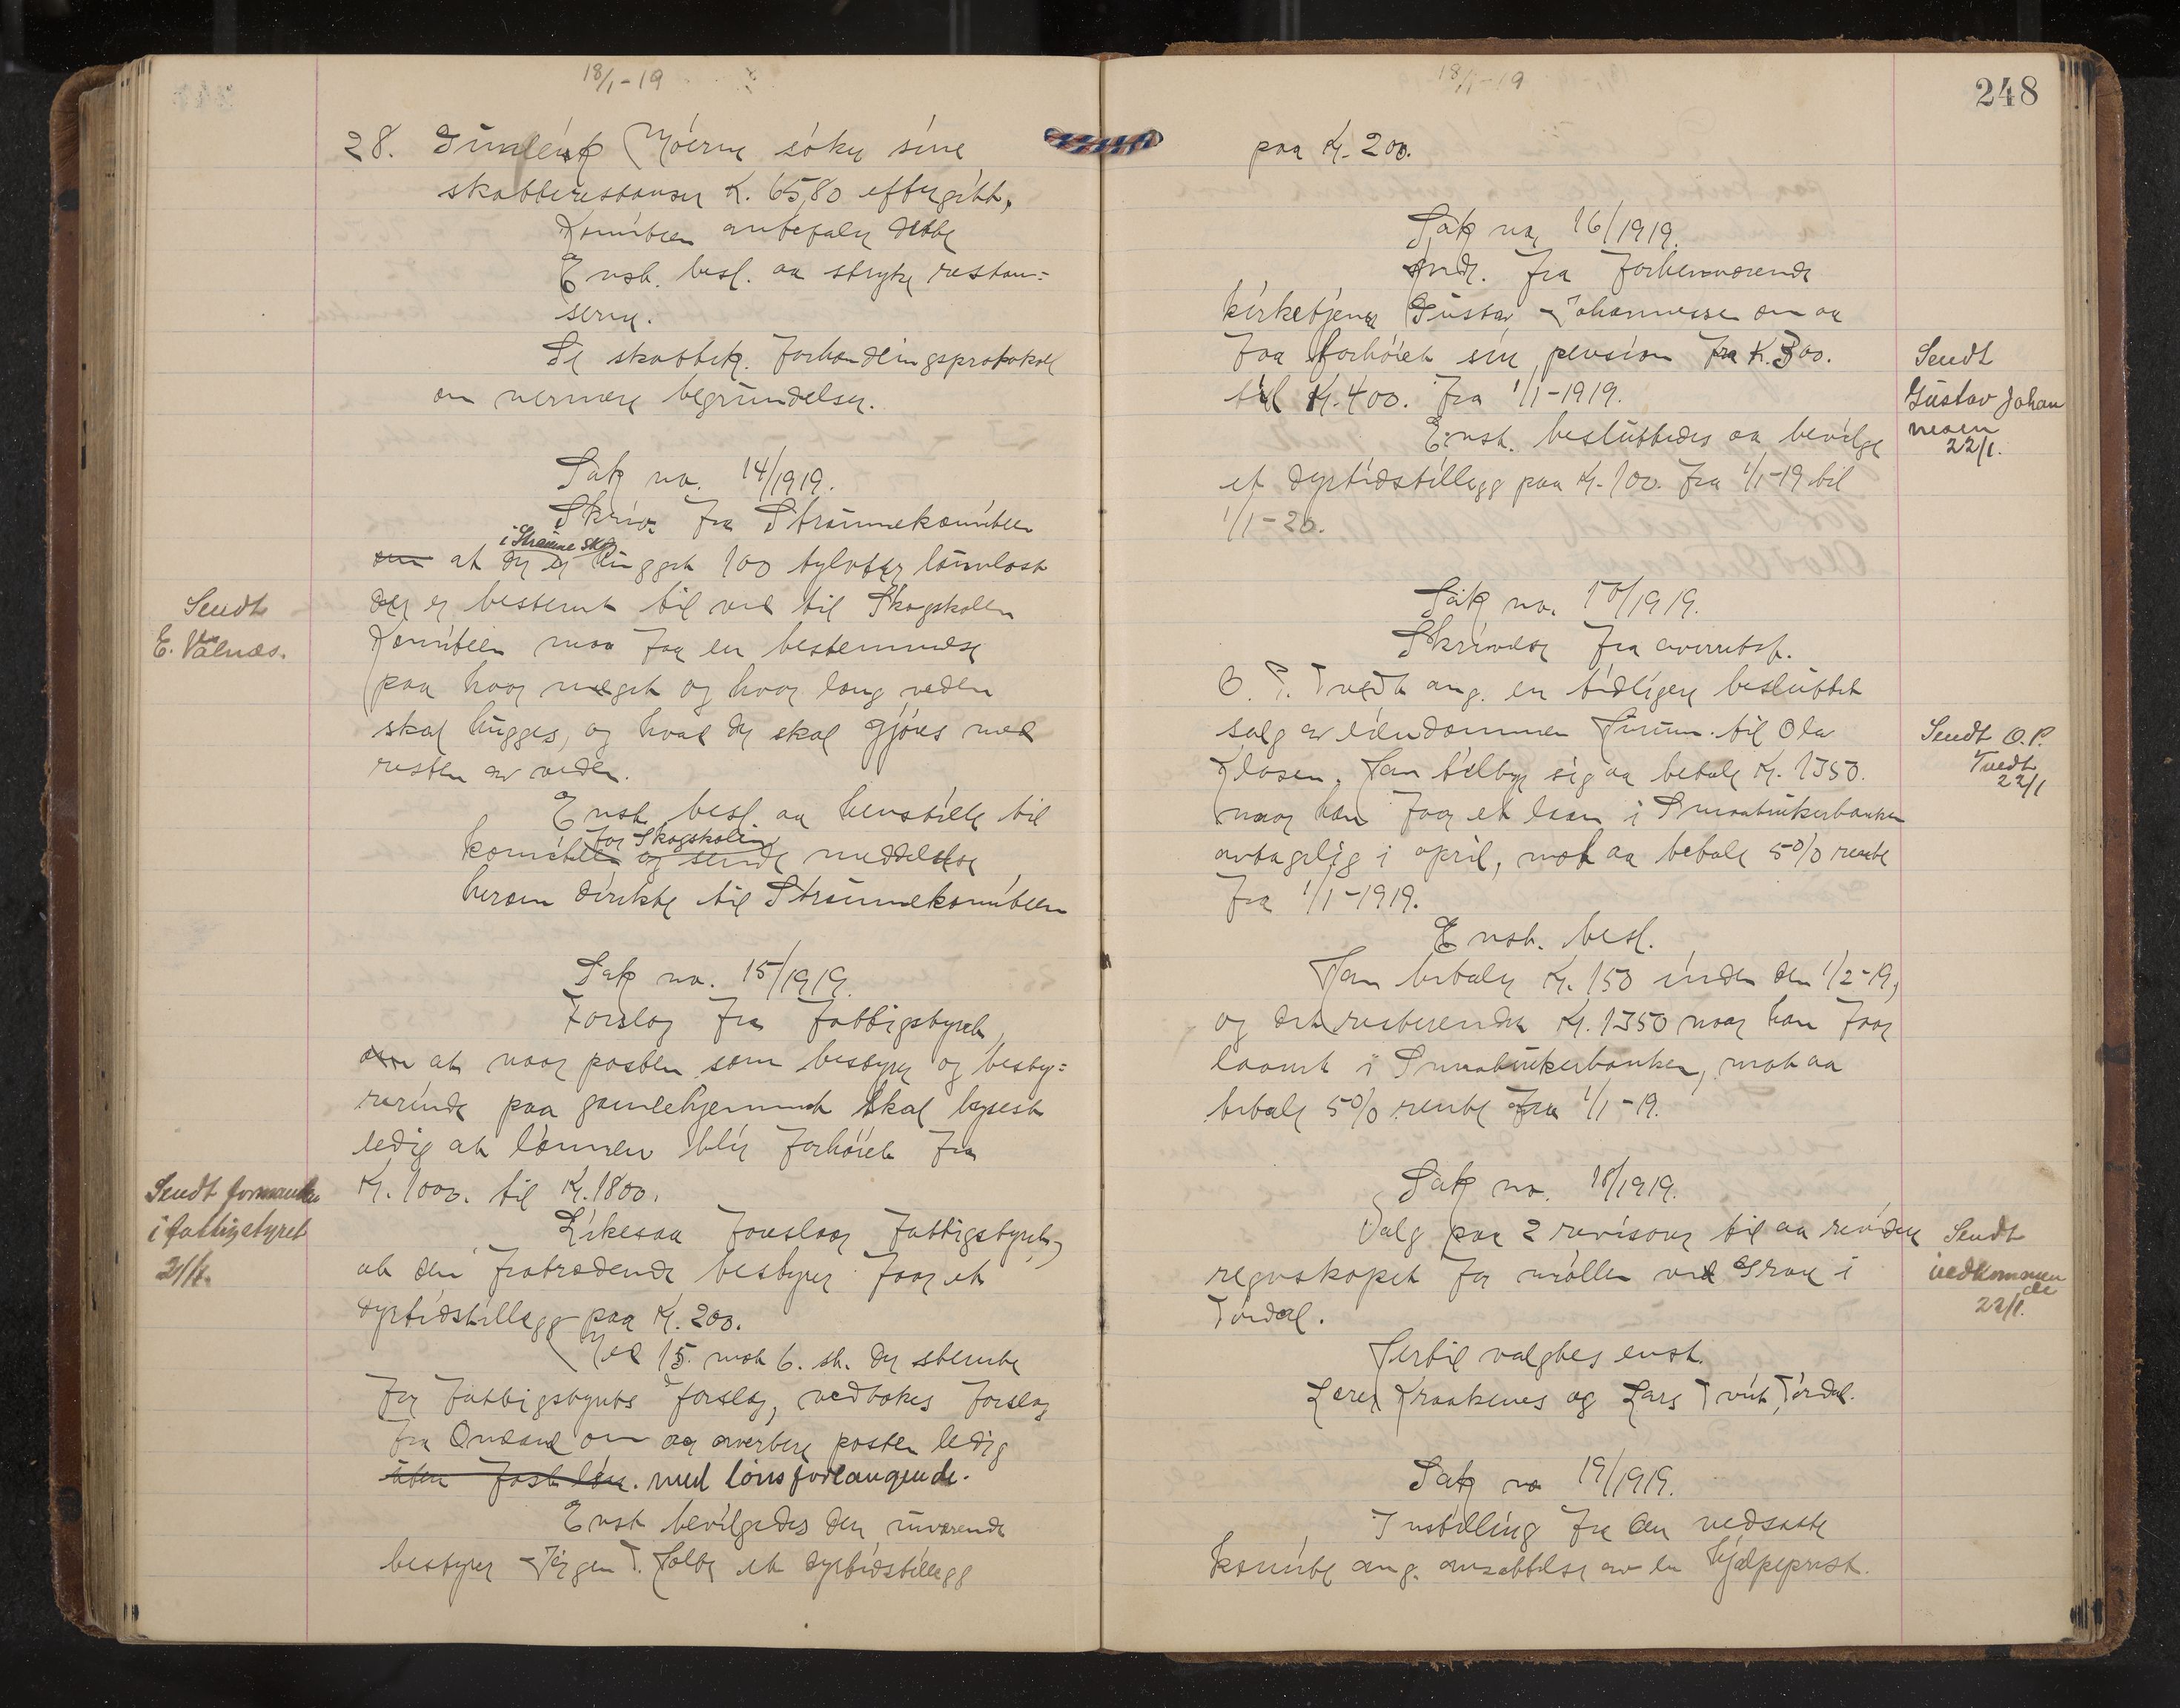 18/1-19
28. Gunleik Moerne söker sine
skatterestanser K. 65,80 eftergitt.
Komiteen anbefaler dette
Enst. besl. aa stryke restan=
serne.
Se skattek. forhandlingsprotokol
om nermere begrundelser.
Sak no. 14/1919.
Skriv. fra Strömmekomiteen
i Strømme skog
om at der er hugget 100 tylvter lauvlast
der er bestemt til ved til Skogskolen
Sendt
E. Vålnes.
Komiteen maa faa en bestemmelse
paa hvor meget og hvor lang veden
skal hugges, og hvad der skal gjöres med
resten av veden.
Enst. besl. aa henstille til
for Skogskolen
komiteen og sende meddelelse
herom direkte til Strömmekomiteen
Sak no. 15/1919.
Forslag fra fattigstyret,
om at naar posten som bestyrer og besty=
rerinde paa gamlehjemmet skal lyses
ledig at lönnen blir forhöiet fra
Kr. 1000. til Kr. 1800.
Sendt formanden
i fattigstyret
21/1.
Likesaa foreslaar fattigstyret,
at den fratrædende bestyrer faar et
dyrtidstillegg paa Kr. 200.
Med 15 mot 6. st. der stemte
for fattigstyrets forslag, vedtokes forslag
fra Omdal om aa avertere posten ledig
uten fast lön. med lönsforlangende.
Enst bevilgedes den nuværende
bestyrer Jörgen T. Holte et dyrtidstillegg
18/1-19
248
paa Kr. 200.
Sak no 16/1919.
And. fra forhenværende
kirketjener Gustav Johannesen om aa
faa forhöiet sin pension fra K. 300.
til Kr. 400. fra 1/1-1919.
Sendt
Gustav Johan
nesen
22/1.
Enst. besluttedes aa bevilge
et dyrtidstillegg paa Kr. 100. fra 1/1-19 til
1/1-20.
Sak no. 17/1919.
Skrivelse fra overretssf.
O. P. Tvedt ang. en tidligere besluttet
salg av eiendommen Furum til Ola
Klasen. Han tilbyr sig aa betale Kr. 1350.
naar han faar et laan i Smaabrukerbanken
antagelig i april, mot aa betale 5% rente
fra 1/1-1919.
Sendt O.P.
Tvedt
22/1
Enst. besl.
Han betaler Kr. 150 inden den 1/2-19,
og det resterende Kr. 1350 naar han faar
laanet i Smaabrukerbanken, mot aa
betale 5% rente fra 1/1-19.
Sak no. 18/1919.
Valg paa 2 revisorer til aa revidere
regnskapet for möllen ved Grave i
Tördal.
Sendt
vedkommen
de
22/1.
Hertil valgtes enst.
Lærer Kraakenes og Lars Tveit, Tördal.
Sak no 19/1919.
Instilling fra den nedsatte
komite ang. ansettelse av en hjelpeprest.